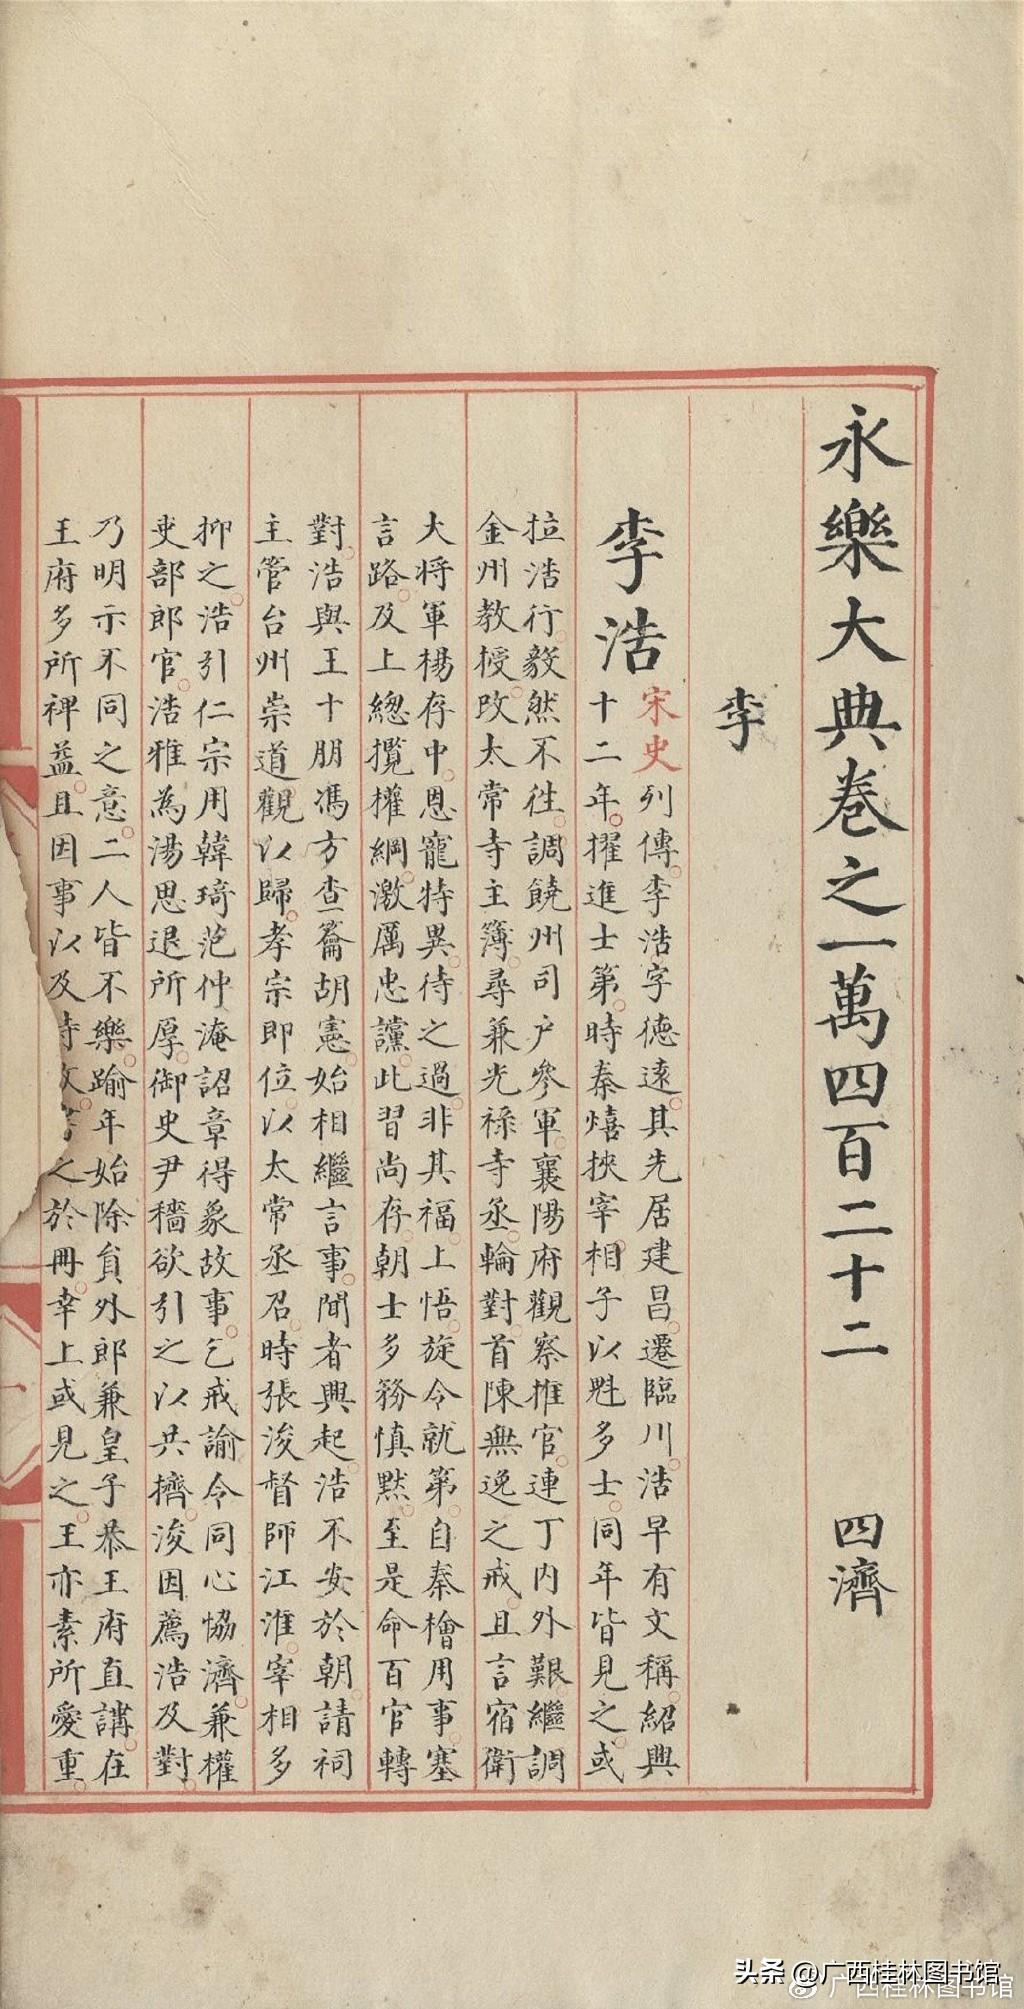 永樂大典卷之一萬四百二十二 四濟
李
李浩
宋史列傳李浩字德遠其先居建昌遷臨川浩早有文稱紹興
十二年擢進士第時秦熺挾宰相子以魁多士同年皆見之或
拉浩行毅然不往調饒州司户參軍襄陽府觀察推官連丁内外艱繼調
金州教授改太常寺主簿尋兼光祿寺丞輪對首陳無逸之戒且言宿衛
大將軍楊存中恩寵特異待之過非其福上悟旋令就第自秦檜用事塞
言路及上總攬權綱激厲忠讜此習尚存朝士多務慎默至是命百官轉
對浩與王十朋馮方查籥胡憲始相繼言事聞者興起浩不安於朝請祠
主管台州崇道觀以歸孝宗即位以太常丞召時張浚督師江淮宰相多
抑之浩引仁宗用韓琦范仲淹詔章得象故事乞戒諭令同心協濟兼權
吏部郎官浩雅為湯思退所厚御史尹穡欲引之以共擠浚因薦浩及對
乃明示不同之意二人皆不樂踰年始除貟外郎兼皇子恭王府直講在
王府多所裨益且因事以及之於冊幸上或見之王亦素所愛重
头条 @广西桂林图书馆
@广西桂林图书馆